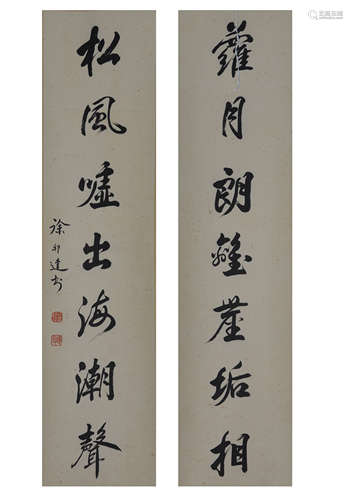 蘿月朗鑑塵垢相
松風嘘出海潮聲
徐邦達書